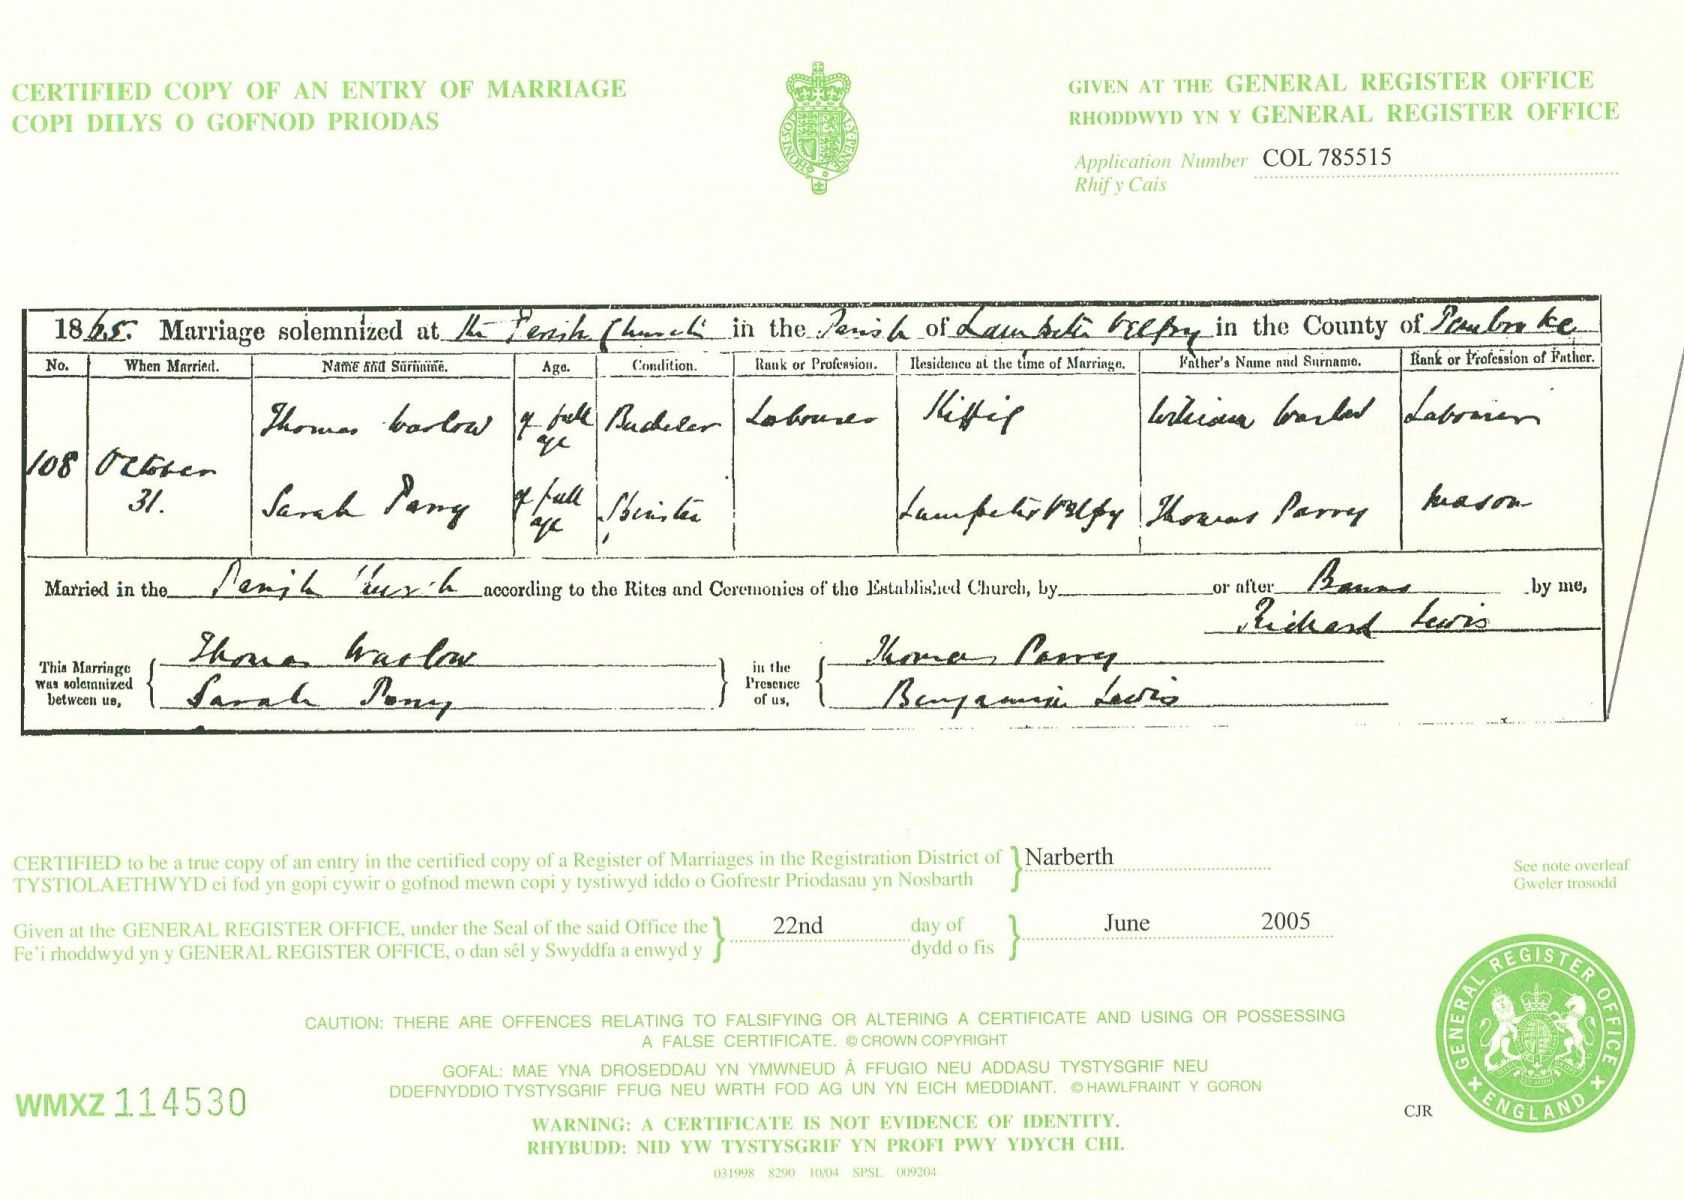 CERTIFIED COPY OF AN ENTRY OF MARRIAGE
COPI DILYS O GOFNOD PRIODAS
GIVEN AT THE GENERAL REGISTER OFFICE
RHODDWYD YN Y GENERAL REGISTER OFFICE
Application Number COL 785515
Rhif y Cais
1865. Marriage solemnized at the Parish Church in the Parish of Lampeter Velfry in the County of Pembroke
No. When Married. Name and Surname. Age. Condition. Rank or Profession. Residence at the time of Marriage. Father's Name and Surname. Rank or Profession of Father.
Thomas Warlow of full age Bachelor Labourer Kiffig William Warlow Labourer
108 October 31.
Sarah Parry of full age Spinster Lampeter Velfry Thomas Parry Mason
Married in the Parish Church according to the Rites and Ceremonies of the Established Church, by or after Banns by me,
Richard Lewis
This Marriage was solemnized between us, Thomas Warlow Sarah Parry in the Presence of us, Thomas Parry Benjamin Lewis
CERTIFIED to be a true copy of an entry in the certified copy of a Register of Marriages in the Registration District of Narberth
TYSTIOLAETHWYD ei fod yn gopi cywir o gofnod mewn copi y tystiwyd iddo o Gofrestr Priodasau yn Nosbarth
See note overleaf
Gweler trosodd
Given at the GENERAL REGISTER OFFICE, under the Seal of the said Office the 22nd day of June 2005
Fe'i rhoddwyd yn y GENERAL REGISTER OFFICE, o dan sêl y Swyddfa a enwyd y dydd o fis
CAUTION: THERE ARE OFFENCES RELATING TO FALSIFYING OR ALTERING A CERTIFICATE AND USING OR POSSESSING
A FALSE CERTIFICATE. © CROWN COPYRIGHT
GOFAL: MAE YNA DROSEDDAU YN YMWNEUD Â FFUGIO NEU ADDASU TYSTYSGRIF NEU
DDEFNYDDIO TYSTYSGRIF FFUG NEU WRTH FOD AG UN YN EICH MEDDIANT. © HAWLFRAINT Y GORON
WMXZ 114530
WARNING: A CERTIFICATE IS NOT EVIDENCE OF IDENTITY.
RHYBUDD: NID YW TYSTYSGRIF YN PROFI PWY YDYCH CHI.
031998 8290 10/04 SPSL 009204
CJR
GENERAL REGISTER OFFICE
ENGLAND